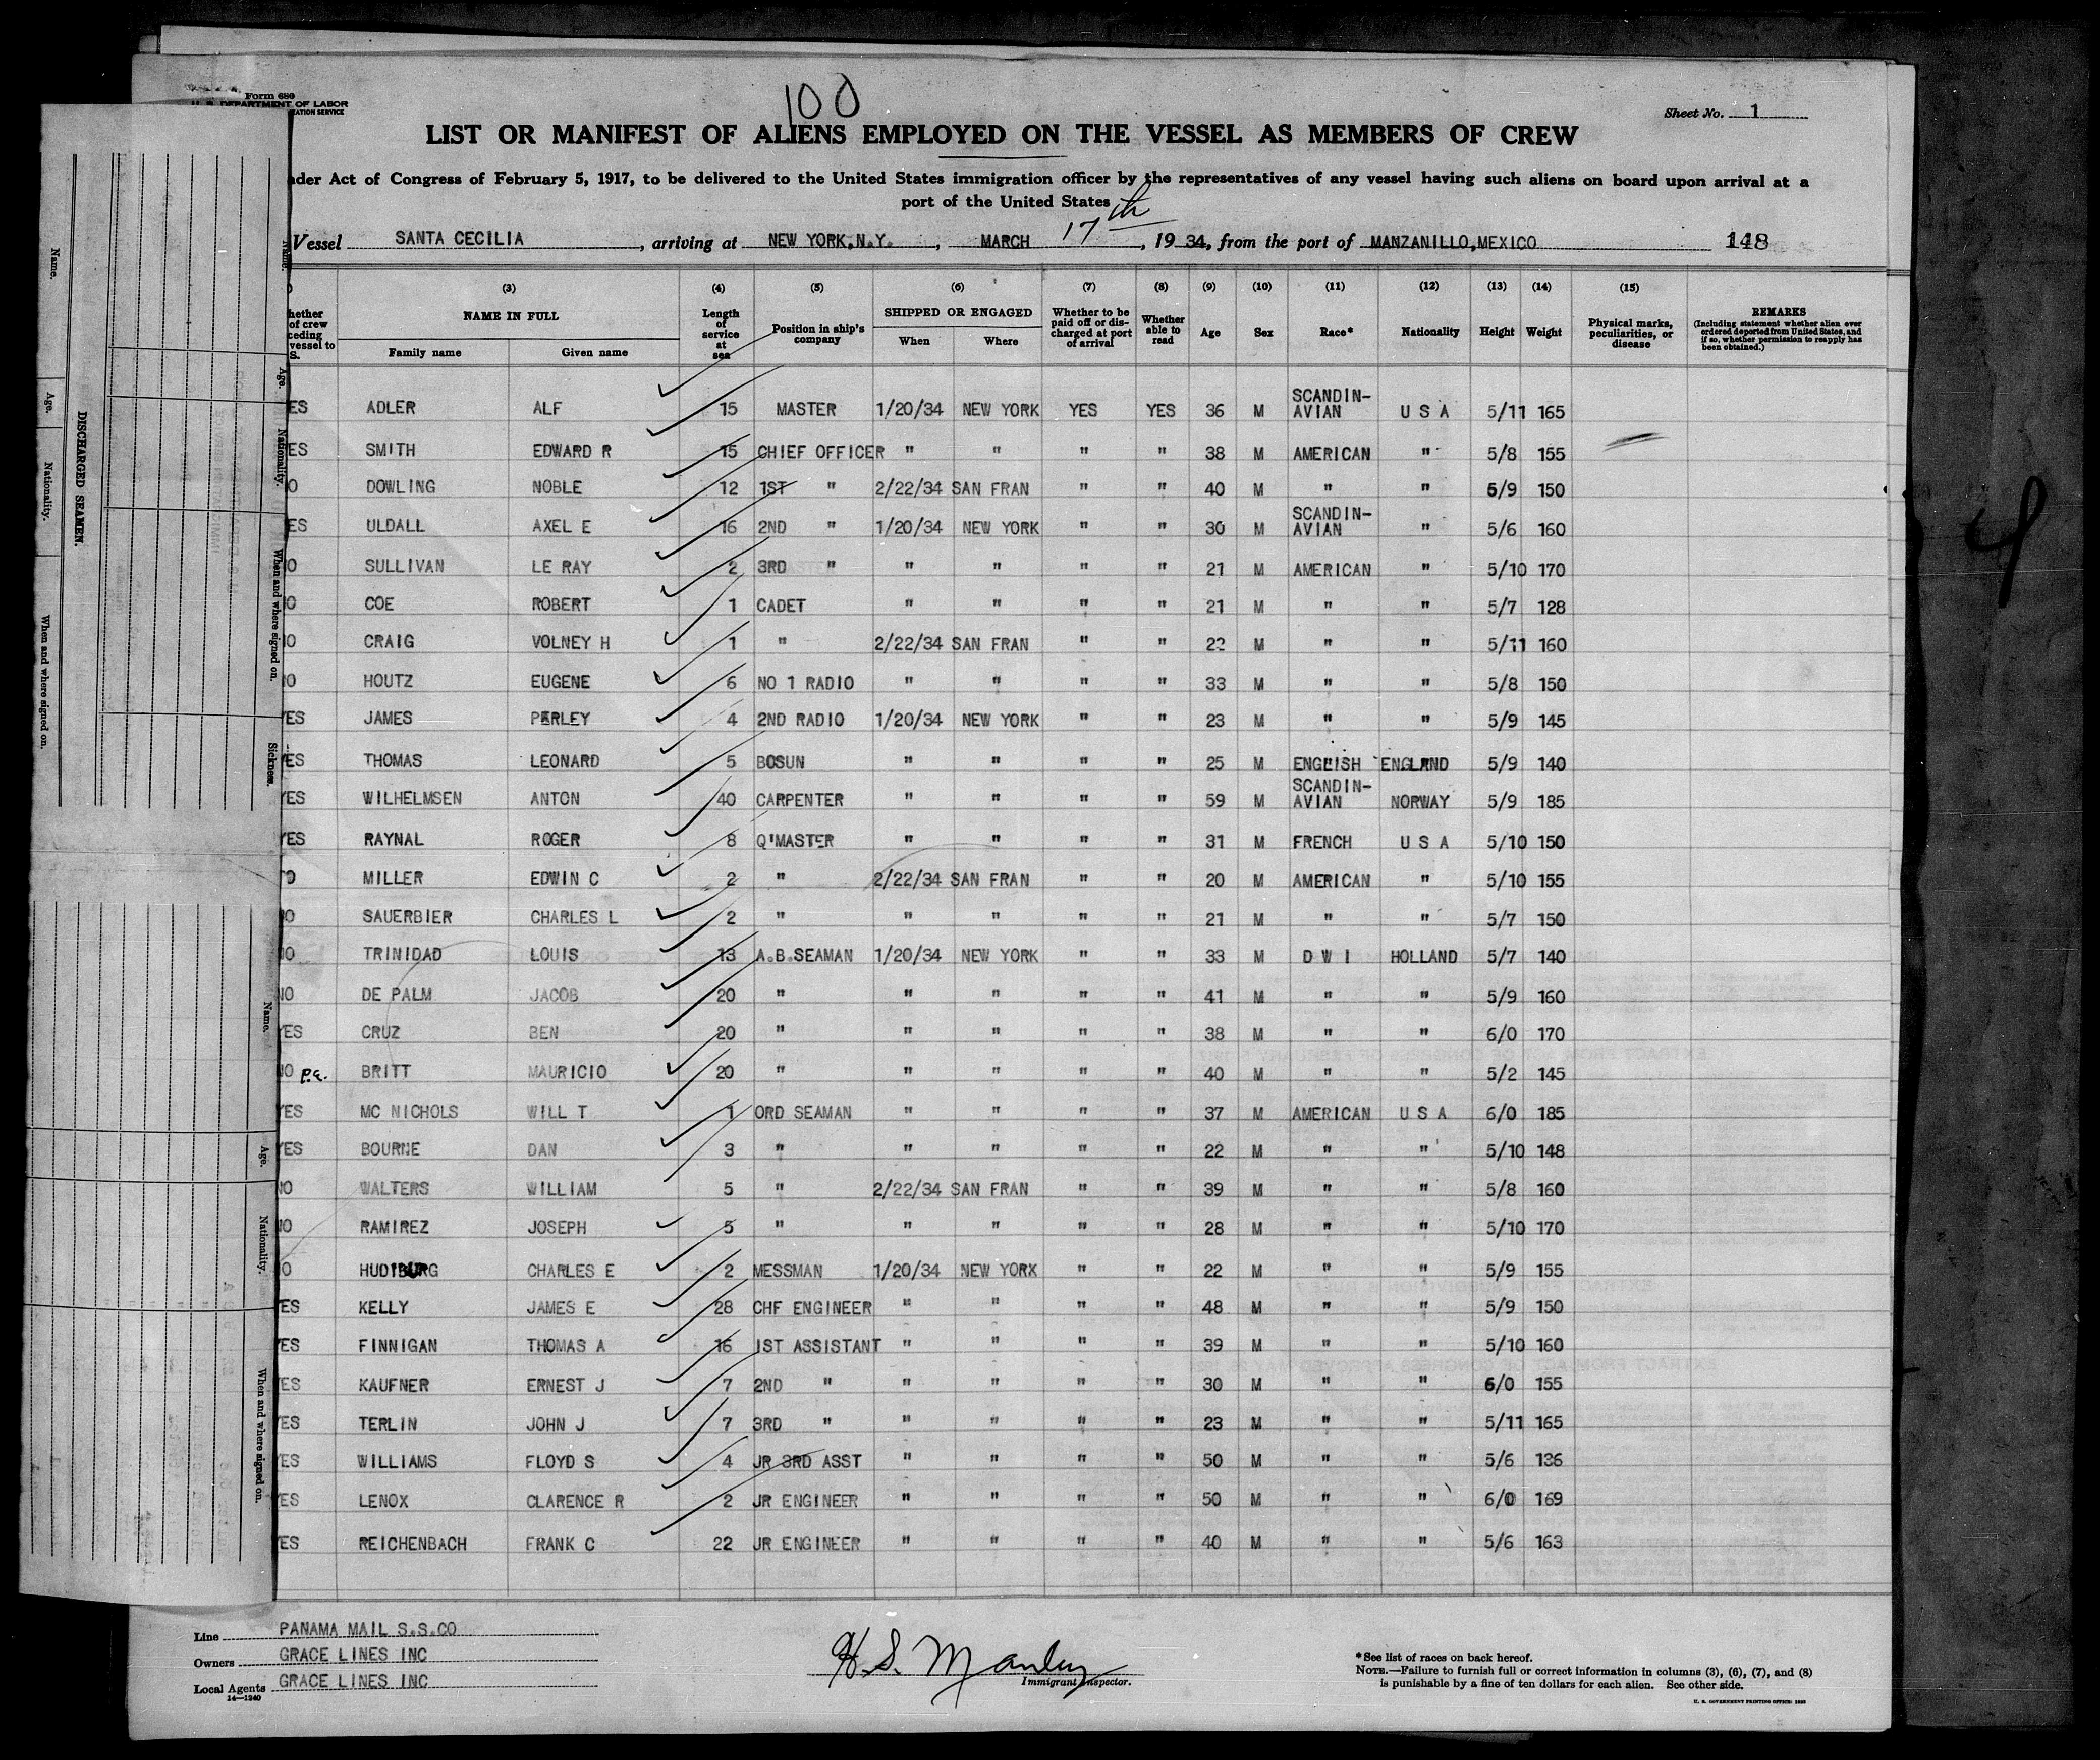 Form 680
U. S. DEPARTMENT OF LABOR
ATION SERVICE
100
Sheet No. 1
LIST OR MANIFEST OF ALIENS EMPLOYED ON THE VESSEL AS MEMBERS OF CREW
nder Act of Congress of February 5, 1917, to be delivered to the United States immigration officer by the representatives of any vessel having such aliens on board upon arrival at a
port of the United States
Vessel SANTA CECILIA, arriving at NEW YORK,N.Y., MARCH 17th, 1934, from the port of MANZANILLO,MEXICO 148
(3) (4) (5) (6) (7) (8) (9) (10) (11) (12) (13) (14) (15)
hether of crew ceding vessel to S. NAME IN FULL Family name Given name Length of service at sea Position in ship's company SHIPPED OR ENGAGED When Where Whether to be paid off or discharged at port of arrival Whether able to read Age Sex Race* Nationality Height Weight Physical marks, peculiarities, or disease REMARKS (Including statement whether alien ever ordered deported from United States, and if so, whether permission to reapply has been obtained.)
ES ADLER ALF 15 MASTER 1/20/34 NEW YORK YES YES 36 M SCANDIN-AVIAN U S A 5/11 165
ES SMITH EDWARD R 15 CHIEF OFFICER " " " " 38 M AMERICAN " 5/8 155
O DOWLING NOBLE 12 1ST " 2/22/34 SAN FRAN " " 40 M " " 5/9 150
ES ULDALL AXEL E 16 2ND " 1/20/34 NEW YORK " " 30 M SCANDIN-AVIAN " 5/6 160
O SULLIVAN LE RAY 2 3RD " " " " " 21 M AMERICAN " 5/10 170
O COE ROBERT 1 CADET " " " " 21 M " " 5/7 128
O CRAIG VOLNEY H 1 " 2/22/34 SAN FRAN " " 22 M " " 5/11 160
O HOUTZ EUGENE 6 NO 1 RADIO " " " " 33 M " " 5/8 150
YES JAMES PERLEY 4 2ND RADIO 1/20/34 NEW YORK " " 23 M " " 5/9 145
YES THOMAS LEONARD 5 BOSUN " " " " 25 M ENGLISH ENGLAND 5/9 140
YES WILHELMSEN ANTON 40 CARPENTER " " " " 59 M SCANDIN-AVIAN NORWAY 5/9 185
YES RAYNAL ROGER 8 Q'MASTER " " " " 31 M FRENCH U S A 5/10 150
O MILLER EDWIN C 2 " 2/22/34 SAN FRAN " " 20 M AMERICAN " 5/10 155
O SAUERBIER CHARLES L 2 " " " " " 21 M " " 5/7 150
O TRINIDAD LOUIS 13 A.B.SEAMAN 1/20/34 NEW YORK " " 33 M D W I HOLLAND 5/7 140
NO DE PALM JACOB 20 " " " " " 41 M " " 5/9 160
YES CRUZ BEN 20 " " " " " 38 M " " 6/0 170
NO BRITT MAURICIO 20 " " " " " 40 M " " 5/2 145
YES MC NICHOLS WILL T 1 ORD SEAMAN " " " " 37 M AMERICAN U S A 6/0 185
YES BOURNE DAN 3 " " " " " 22 M " " 5/10 148
NO WALTERS WILLIAM 5 " 2/22/34 SAN FRAN " " 39 M " " 5/8 160
NO RAMIREZ JOSEPH 5 " " " " " 28 M " " 5/10 170
O HUDIBURG CHARLES E 2 MESSMAN 1/20/34 NEW YORK " " 22 M " " 5/9 155
YES KELLY JAMES E 28 CHF ENGINEER " " " " 48 M " " 5/9 150
YES FINNIGAN THOMAS A 16 1ST ASSISTANT " " " " 39 M " " 5/10 160
YES KAUFNER ERNEST J 7 2ND " " " " " 30 M " " 6/0 155
YES TERLIN JOHN J 7 3RD " " " " " 23 M " " 5/11 165
YES WILLIAMS FLOYD S 4 JR 3RD ASST " " " " 50 M " " 5/6 136
YES LENOX CLARENCE R 2 JR ENGINEER " " " " 50 M " " 6/0 169
ES REICHENBACH FRANK C 22 JR ENGINEER " " " " 40 M " " 5/6 163
Line PANAMA MAIL S.S.CO
Owners GRACE LINES INC
Local Agents GRACE LINES INC
14—1240
H.S. Manley
Immigrant Inspector.
*See list of races on back hereof.
NOTE.—Failure to furnish full or correct information in columns (3), (6), (7), and (8)
is punishable by a fine of ten dollars for each alien. See other side.
U. S. GOVERNMENT PRINTING OFFICE:
DISCHARGED SEAMEN.
Name.
Age.
Nationality.
When and where signed on.
Name.
Age.
Nationality.
When and where signed on.
Sickness.
Name.
Age.
Nationality.
When and where signed on.